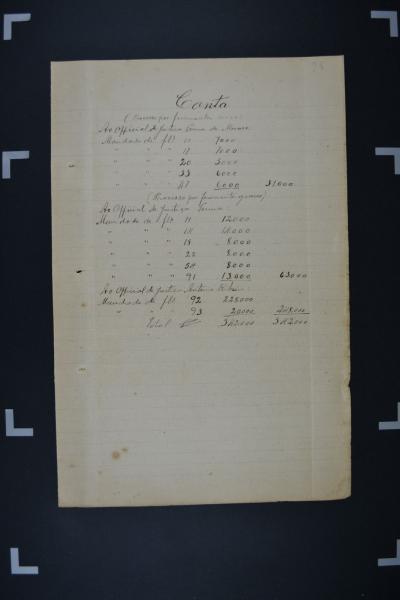 Conta
(Processo por ferimentos leves)
Ao Official de justiça Souza de Moraes
Mandado de fls 11 7000
" " " 17 7000
" " " 20 5000
" " " 33 6000
" " " 47 6000 31.000
(Processo por ferimento graves)
Ao Official de justiça Souza
Mandado de fls 11 12.000
" " " 14 14.000
" " " 18 8.000
" " " 22 8.000
" " " 54 8.000
" " " 91 13.000 63.000
Ao Official de justiça Antonio
Mandado de fls 92 228.000
" " " 93 20.000 248.000
Total 342.000 342.000